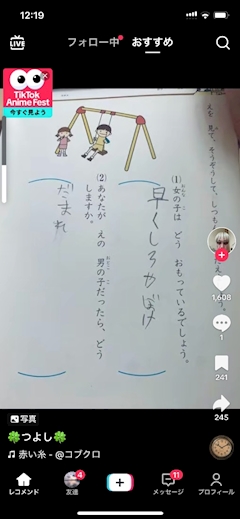 12:19
LIVE
フォロー中
おすすめ
TikTok
Anime Fest
今すぐ見よう
えを 見て、そうぞうして、しつも
(1)女の子は どう おもっているでしょう。
早くしろやぼけ
(2)あなたが えの 男の子だったら、どう
しますか。
だまれ
1,608
1
241
245
写真
🍀つよし🍀
赤い糸 - @コブクロ
レコメンド
友達
4
メッセージ
11
プロフィール